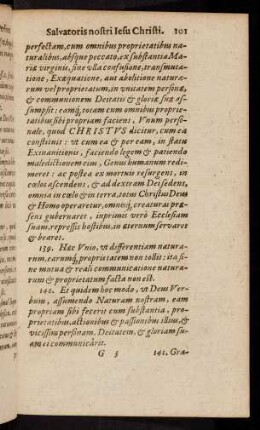 Salvatoris nostri Iesu Christi. 101
perfectam, cum omnibus proprietatibus na-
turalibus, absque peccato, ex substantia Ma-
riæ virginis, sine vlla confusione, transmuta-
tione, Exæquatione, aut abolitione naturæ-
rum vel proprietatum, in vnitatem personæ,
& communionem Deitatis & gloriæ suæ as-
sumpsit: eamq́; totam cum omnibus proprie-
tatibus sibi propriam faciens, Vnum perso-
nale, quod CHRISTVS dicitur, cum ea
constituit: vt cum ea & per eam, in statu
Exinanitionis, faciendo legem & patiendo
maledictionem eius, Genus humanum redi-
meret: ac postea ex mortuis resurgens, in
cœlos ascendens, & ad dextram Dei sedens,
omnia in cœlo & in terra, totus Christus Deus
& Homo operaretur, omneiq́; creaturæ præ-
sens gubernaret, inprimis verò Ecclesiam
suam, repressis hostibus, in æternum servaret
& bearet.
139. Hæc Vnio, vt differentiam natura-
rum, earumq́; proprietatem non tollit: ita si-
ne mutua & reali communicatione natura-
rum & proprietatum facta non est.
140. Et quidem hoc modo, vt Deus Ver-
bum, assumendo Naturam nostram, eam
propriam sibi fecerit cum substantia, pro-
prietatibus, actionibus & passionibus illius, &
vicissim personam, Deitatem, & gloriam su-
am ei communicârit.
G 3 141. Gra-